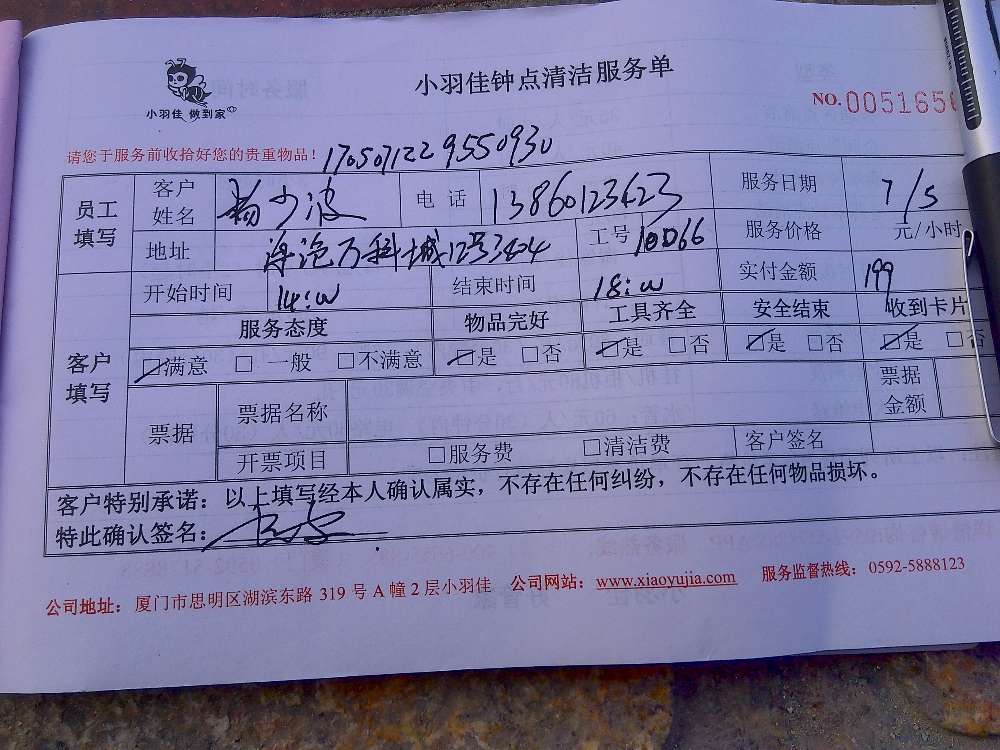 小羽佳 做到家
小羽佳钟点清洁服务单
NO.005165
请您于服务前收拾好您的贵重物品！ 1705071229550930
员工填写 客户姓名 杨少波 电话 13860123623 服务日期 7/5
地址 海沧万科城12号3404 工号 18D66 服务价格 元/小时
客户填写 开始时间 14:00 结束时间 18:00 实付金额 199
服务态度 物品完好 工具齐全 安全结束 收到卡片
☑满意 □一般 □不满意 ☑是 □否 ☑是 □否 ☑是 □否 ☑是 □否
票据 票据名称 票据金额
开票项目 □服务费 □清洁费 客户签名
客户特别承诺：以上填写经本人确认属实，不存在任何纠纷，不存在任何物品损坏。
特此确认签名：
公司地址：厦门市思明区湖滨东路 319 号 A 幢 2 层小羽佳 公司网站：www.xiaoyujia.com 服务监督热线：0592-5888123